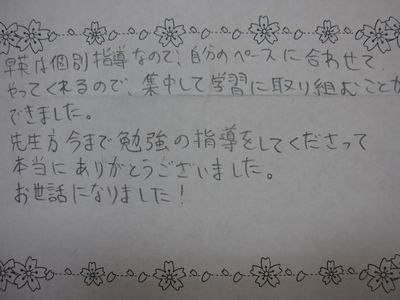 早英は個別指導なので、自分のペースに合わせて
やってくれるので、集中して学習に取り組むことが
できました。
先生方今まで勉強の指導をしてくださって
本当にありがとうございました。
お世話になりました！